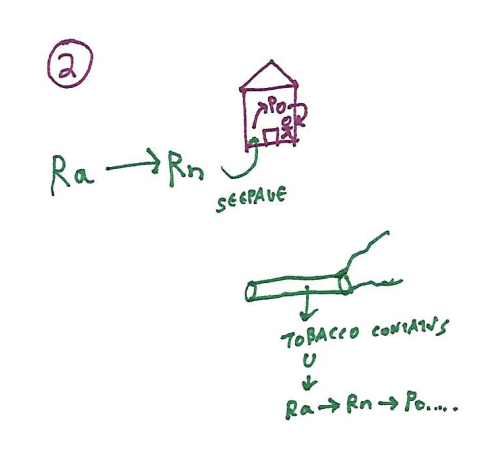 2
Po
Ra → Rn
SEEPAVE
TOBACCO CONTAINS
U
↓
Ra → Rn → Po.....